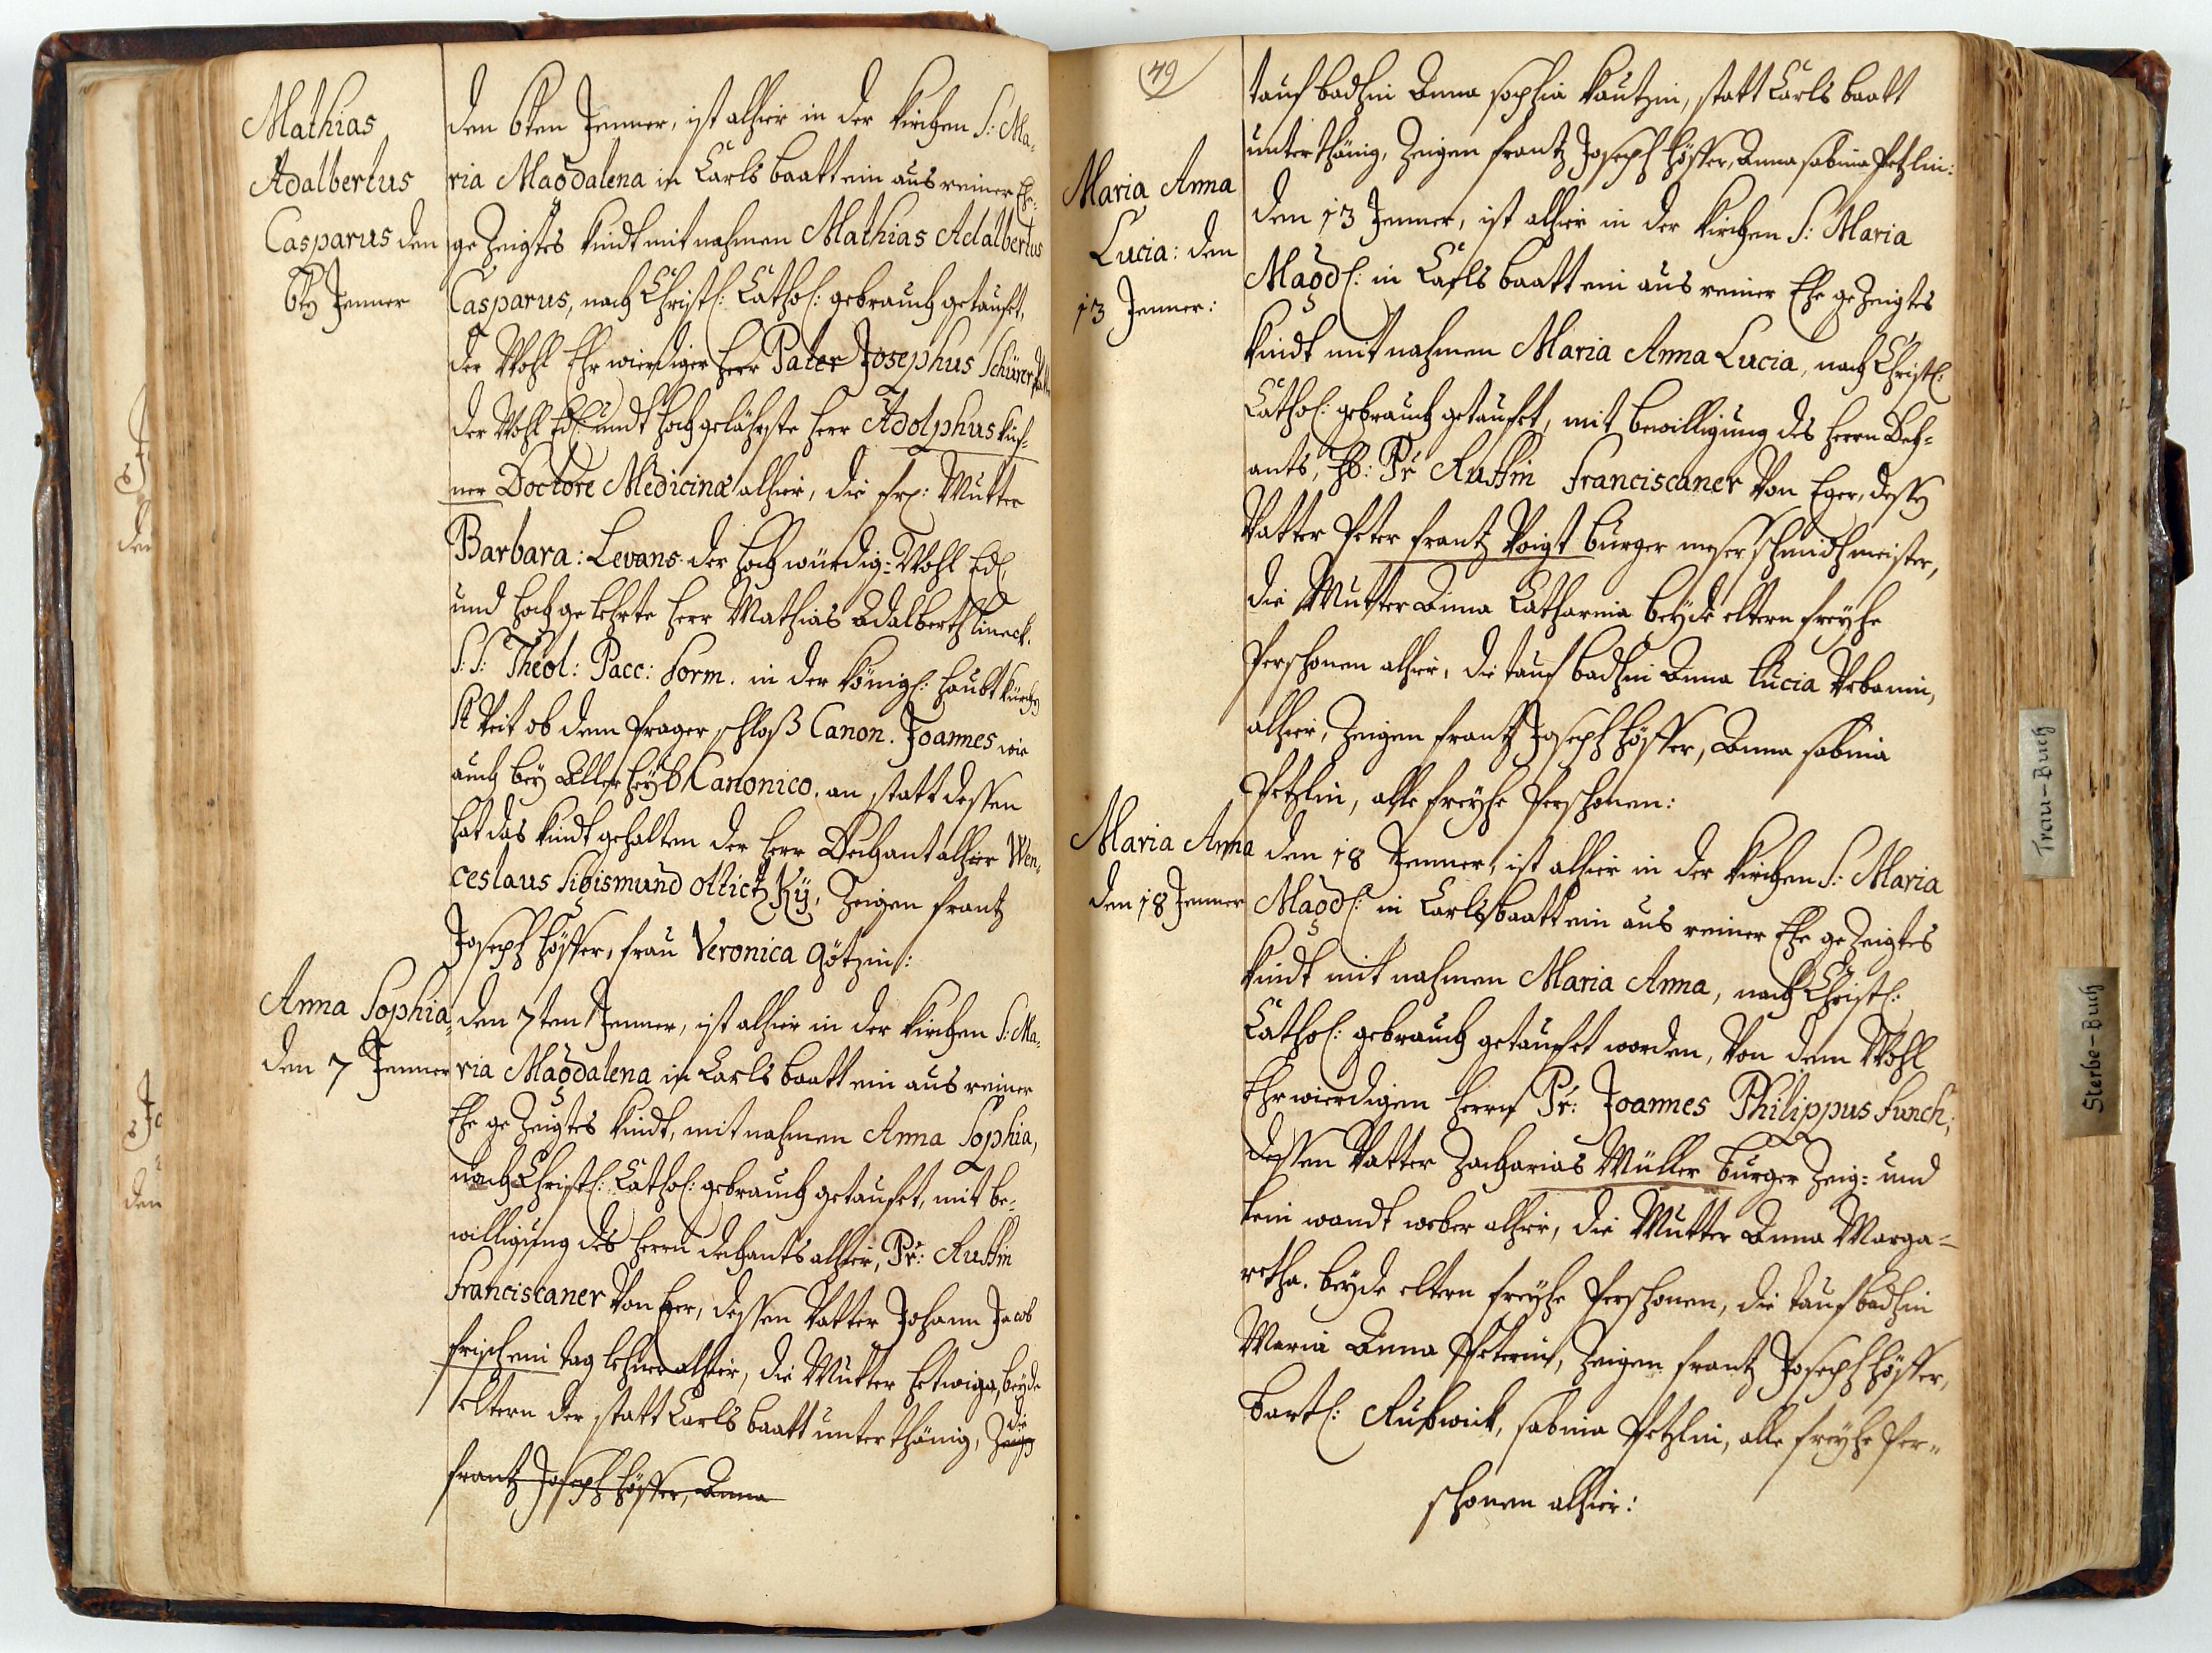 Mathias
Adalbertus
Casparus den
6ten Jenner
den 6ten Jenner, ist alhier in der Kirchen S: Ma-
ria Magdalena in Carls baatt ein aus reiner Ehe
ge Zeigtes Kindt mit nahmen Mathias Adalbertus
Casparus, nach Christl: Cathol: gebrauch getaufft,
der Wohl Ehr wierdiger Herr Pater Josephus Schürer
der Wohl Edl undt Hoch gelährste Herr Adolphus Küch-
ner Doctore Medicinæ alhier, die Mutter
Barbara: Levans. der Hoch würdig- Wohl Edl,
und Hoch ge lehrte Herr Mathias Adalberth lineck.
S: S: Theol: Pacc: Form. in der Königl: Haubt Kürchen
St Veit ob dem Prager schloß Canon. Joannes wie
auch bey Aller Heyl Canonico. an statt dessen
hat das Kindt gehalten der Herr Dechant alhier Wen-
ceslaus Sigismund ottictz Ky, Zeigen Frantz
Joseph Höffer, frau Veronica Götzin:
Anna Sophia
den 7 Jenner
den 7ten Jenner, ist alhier in der Kirchen S: Ma-
ria Magdalena in Carls baatt ein aus reiner
Ehe ge Zeigtes Kindt, mit nahmen Anna Sophia,
nach Christl: Cathol: gebrauch getaufft, mit be-
willigung des Herrn dechants alhier, Pr: Ruffin
Franciscaner Von Eger, dessen Vatter Johann Jacob
frisch ein tag lehner alhier, die Mutter Hetwiga, beyde
eltern der statt Carls baatt unterthänig, die Zeigen
Frantz Joseph Höffer, Anna
49
tauf badhin Anna sophia Kautzin, statt Carls baatt
unterthänig, Zeigen frantz Joseph Höffer, Anna sabina Petzlin:
Maria Anna
Lucia: den
13 Jenner:
den 13 Jenner, ist alhier in der Kirchen S: Maria
Magdl: in Carls baatt ein aus reiner Ehe ge Zeigtes
Kindt mit nahmen Maria Anna Lucia, nach Christl:
Cathol: gebrauch getaufft, mit bewilligung des Herrn Dech-
ants, Pr Ruffin Franciscaner Von Eger, dessen
Vatter Peter frantz Voigt burger meser schmidtmeister,
die Mutter Anna Catharina beyde eltern freyhe
Perschonen alhier, die tauf badhin Anna Lucia Urbanin,
alhier, Zeigen frantz Joseph Höffer, Anna sabina
Petzlin, alle freyhe Perschonen:
Maria Anna
den 18 Jenner
den 18 Jenner, ist alhier in der Kirchen S: Maria
Magdl: in Carlsbaatt ein aus reiner Ehe ge Zeigtes
Kindt mit nahmen Maria Anna, nach Christl:
Cathol: gebrauch getaufft worden, Von dem Wohl
Ehr wierdigem Herrn Pr: Joannes Philippus Funch,
dessen Vatter Zacharias Müller burger Zeig- und
lein wandt weber alhier, die Mutter Anna Marga-
retha. beyde eltern freyhe Perschonen, die tauf badhin
Maria Anna Peterin, Zeigen frantz Joseph Höffer,
Bartl: Rußwick, sabina Petzlin, alle freyhe Per-
schonen alhier:
Trau-Buch
Sterbe-Buch